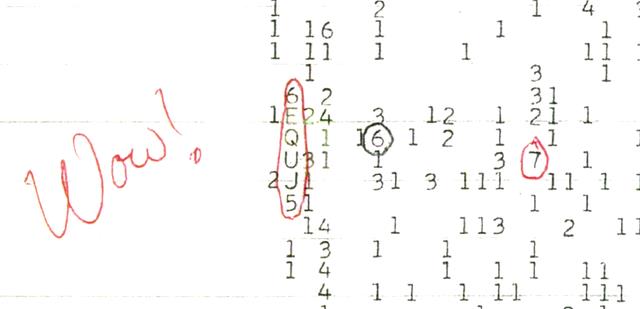 1 2 1 4
1 16 1 1 1
1 11 1 1 11
1 3 1
6 2 31
1 E 24 3 12 1 21 1
Q 1 16 1 2 1 1 1
Wow!
U 31 1 3 7 1
2 J1 31 3 111 11 1 1
51 1 1
14 1 113 2 11
1 3 1 1 1
1 4 1 1 1 11
4 1 1 1 11 111